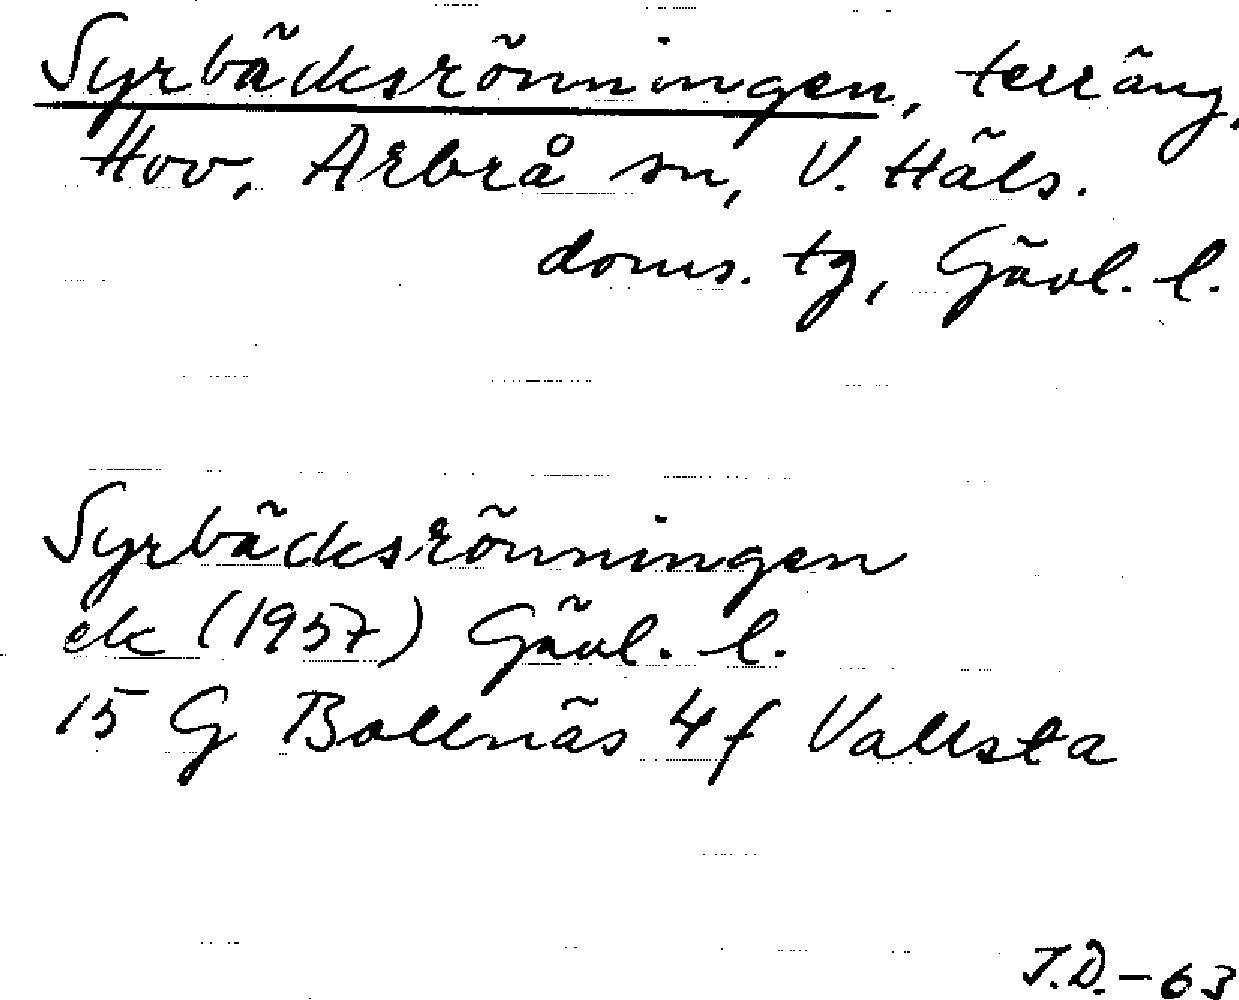 Syrbäcksrönningen, terräng,
Hov, Arbrå sn, V. Häls.
doms. tg, Gävl. l.
Syrbäcksrönningen
ek (1957) Gävl. l.
15 G Bollnäs 4f Vallsta
T.D.-63